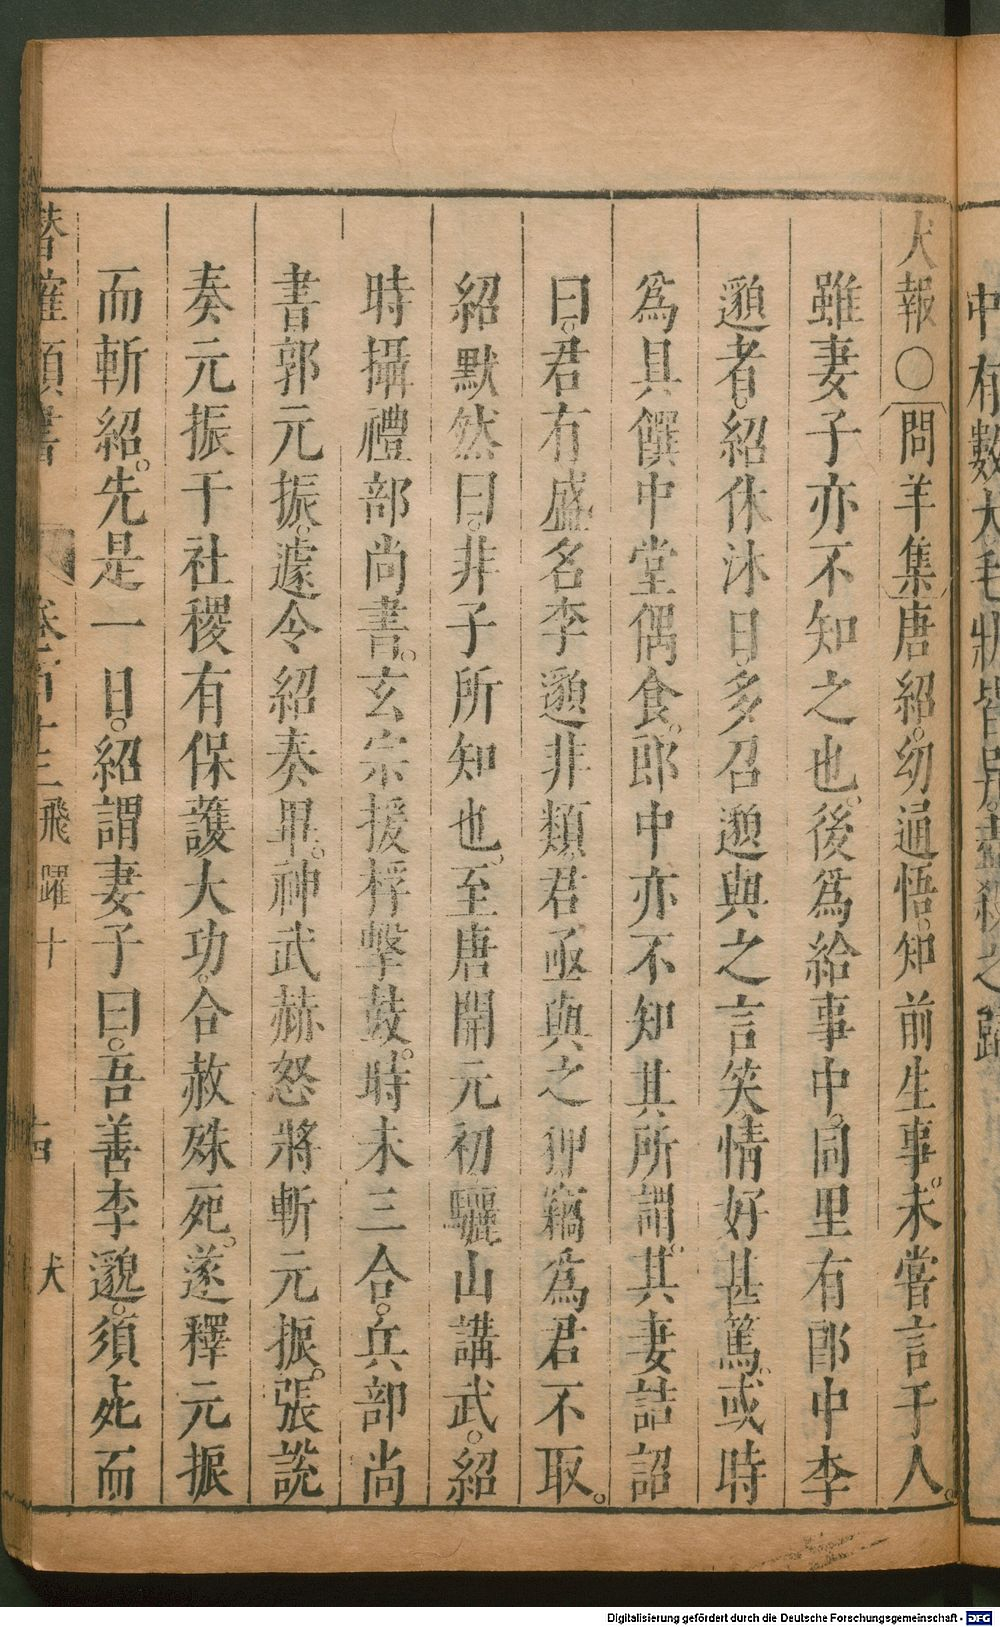 中有數犬毛狀皆異盡殺之
犬報〇問羊集唐紹。幼通悟。知前生事。未嘗言于人。
雖妻子亦不知之也。後爲給事中。同里有郎中李
邈者。紹休沐日。多召邈與之言笑情好甚篤。或時
爲具饌中堂偶食。郎中亦不知其所謂。其妻詰詔
曰。君有盛名李邈非類君亟與之狎竊爲君不取。
紹默然曰。非子所知也。至唐開元初驪山講武。紹
時攝禮部尚書。玄宗援桴擊鼓。時未三合。兵部尚
書郭元振。遽令紹奏畢。神武赫怒將斬元振。張說
奏元振于社稷有保護大功。合赦殊死。遂釋元振
而斬紹。先是一日。紹謂妻子曰。吾善李邈。須死而
潛確類書 卷百十三 飛躍十 犬
Digitalisierung gefördert durch die Deutsche Forschungsgemeinschaft - DFG